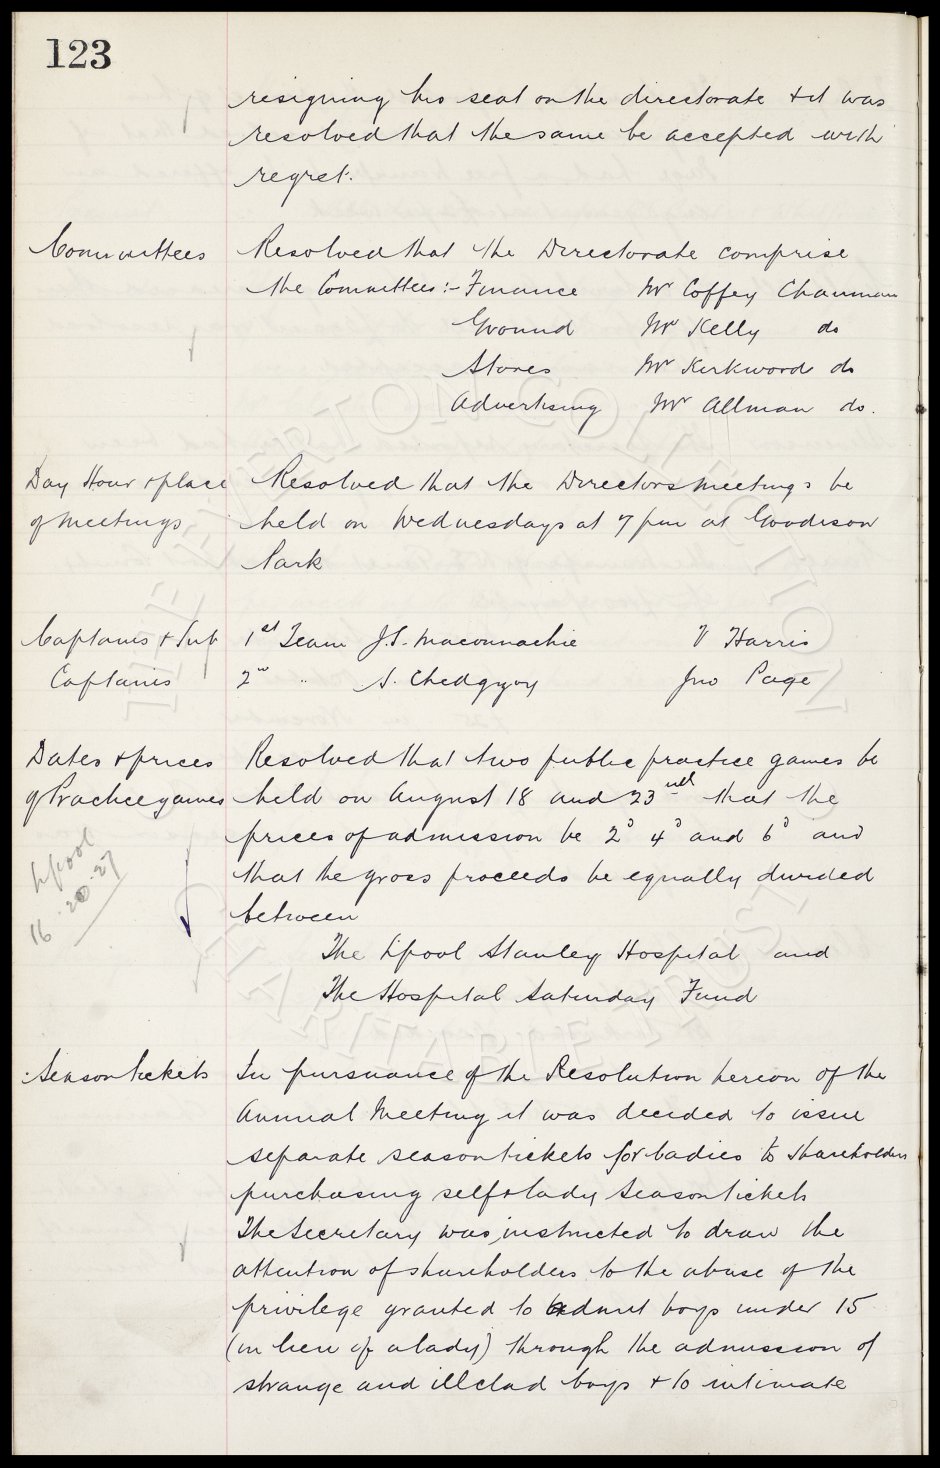 123
resigning his seat on the directorate & it was
resolved that the same be accepted with
regret.
Committees
Resolved that the Directorate comprise
the Committees:- Finance Mr Coffey Chairman
Ground Mr Kelly do
Stores Mr Kirkwood do
Advertising Mr Allman do.
Day Hour & place
of meetings
Resolved that the Directors meetings be
held on Wednesdays at 7 pm at Goodison
Park
Captains & Sub
Captains
1st Team J.S. Maconnachie V Harris
2nd " S. Chedgzoy Jno Page
Dates & prices
of Practice games
Resolved that two public practice games be
held on August 18 and 23rd that the
prices of admission be 2d 4d and 6d and
that the gross proceeds be equally divided
between
L'pool
16 20 27
The L'pool Stanley Hospital and
The Hospital Saturday Fund
Season tickets
In pursuance of the Resolution hereon of the
Annual Meeting it was decided to issue
separate season tickets for ladies to shareholders
purchasing self & lady season tickets
The Secretary was instructed to draw the
attention of shareholders to the abuse of the
privilege granted to admit boys under 15
(in lieu of a lady) through the admission of
strange and illclad boys & to intimate